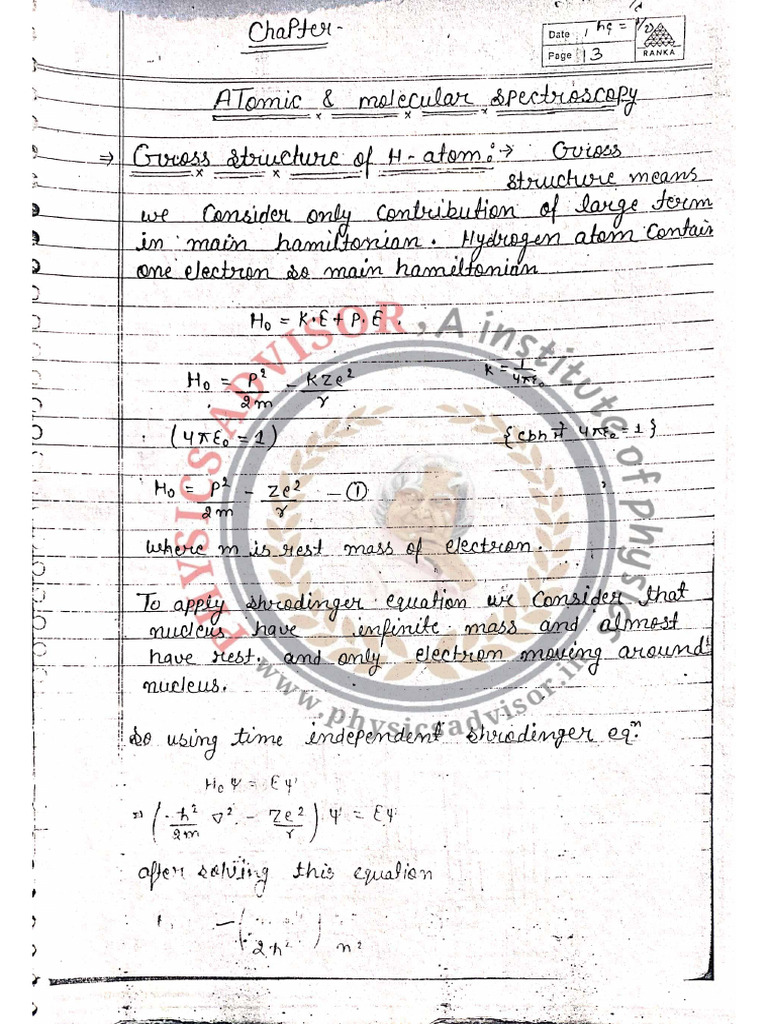 Chapter-
Date / hc =
Page 13
RANKA
ATomic & molecular spectroscopy
⇒ Gross structure of H-atom:→ Gross
structure means
we Consider only contribution of large term
in main hamiltonian. Hydrogen atom contain
one electron so main hamiltonian
H₀ = K.E + P.E.
H₀ = P²/2m - KZe²/r K = 1/4πε₀
(4πε₀ = 1) 4πε₀ = 1}
H₀ = P²/2m - Ze²/r - ①
where m is rest mass of electron.
To apply shrodinger equation we Consider that
nucleus have infinite mass and almost
have rest. and only electron moving around
nucleus.
So using time independent shrodinger eqⁿ.
H₀ψ = Eψ
⇒ (-ħ²/2m ∇² - Ze²/r) ψ = Eψ
after solving this equation
-( 2ħ² ) n²
PHYSICS ADVISOR, A institute of Physics
www.physicsadvisor.in